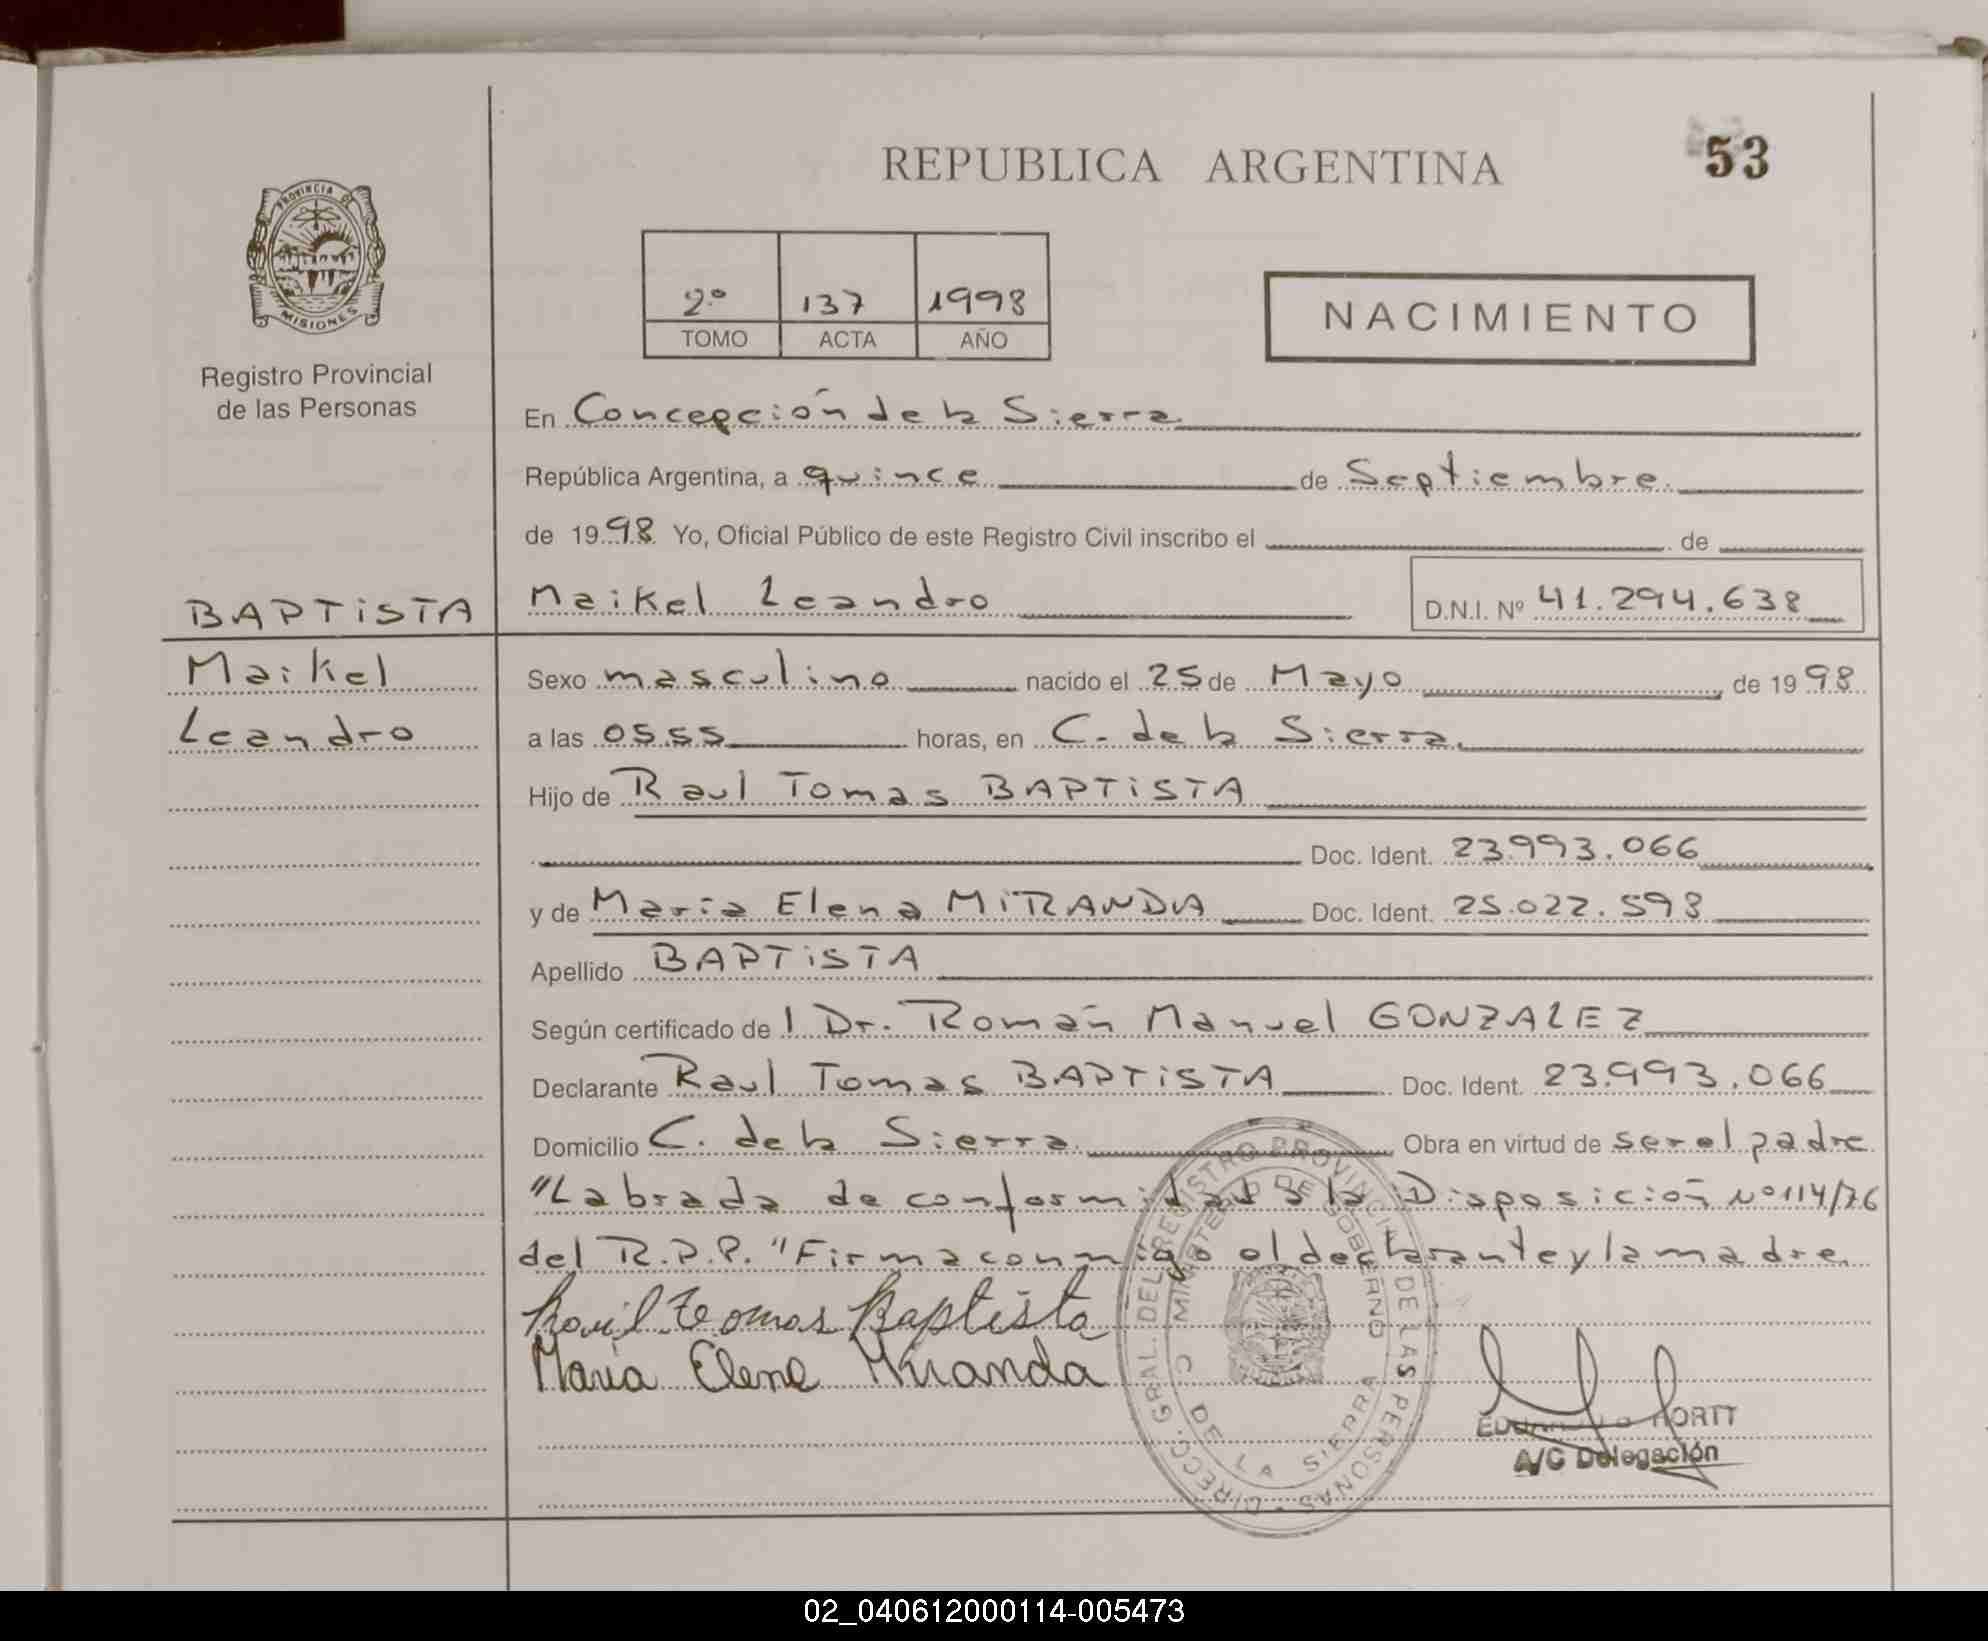 REPUBLICA ARGENTINA
53
PROVINCIA DE
MISIONES
Registro Provincial
de las Personas
2º 137 1998
TOMO ACTA AÑO
NACIMIENTO
En Concepción de la Sierra
República Argentina, a quince de Septiembre
de 1998 Yo, Oficial Público de este Registro Civil inscribo el de
BAPTISTA Maikel Leandro D.N.I. Nº 41.294.638
Maikel Sexo masculino nacido el 25 de Mayo de 1998
Leandro a las 0555 horas, en C. de la Sierra
Hijo de Raul Tomas BAPTISTA
Doc. Ident. 23.993.066
y de María Elena MIRANDA Doc. Ident. 25.022.598
Apellido BAPTISTA
Según certificado de l Dr. Román Manuel GONZALEZ
Declarante Raul Tomas BAPTISTA Doc. Ident. 23.993.066
Domicilio C. de la Sierra Obra en virtud de ser el padre
"Labrada de conformidad a la Disposición Nº 114/76
del R.P.P." Firma conmigo el declarante y la madre
Raul tomas Baptista
Maria Elena Miranda
DIRECC. GRAL. DEL REGISTRO PROVINCIAL DE LAS PERSONAS
MINISTERIO DE GOBIERNO
C. DE LA SIERRA
A/C Delegación
02_040612000114-005473